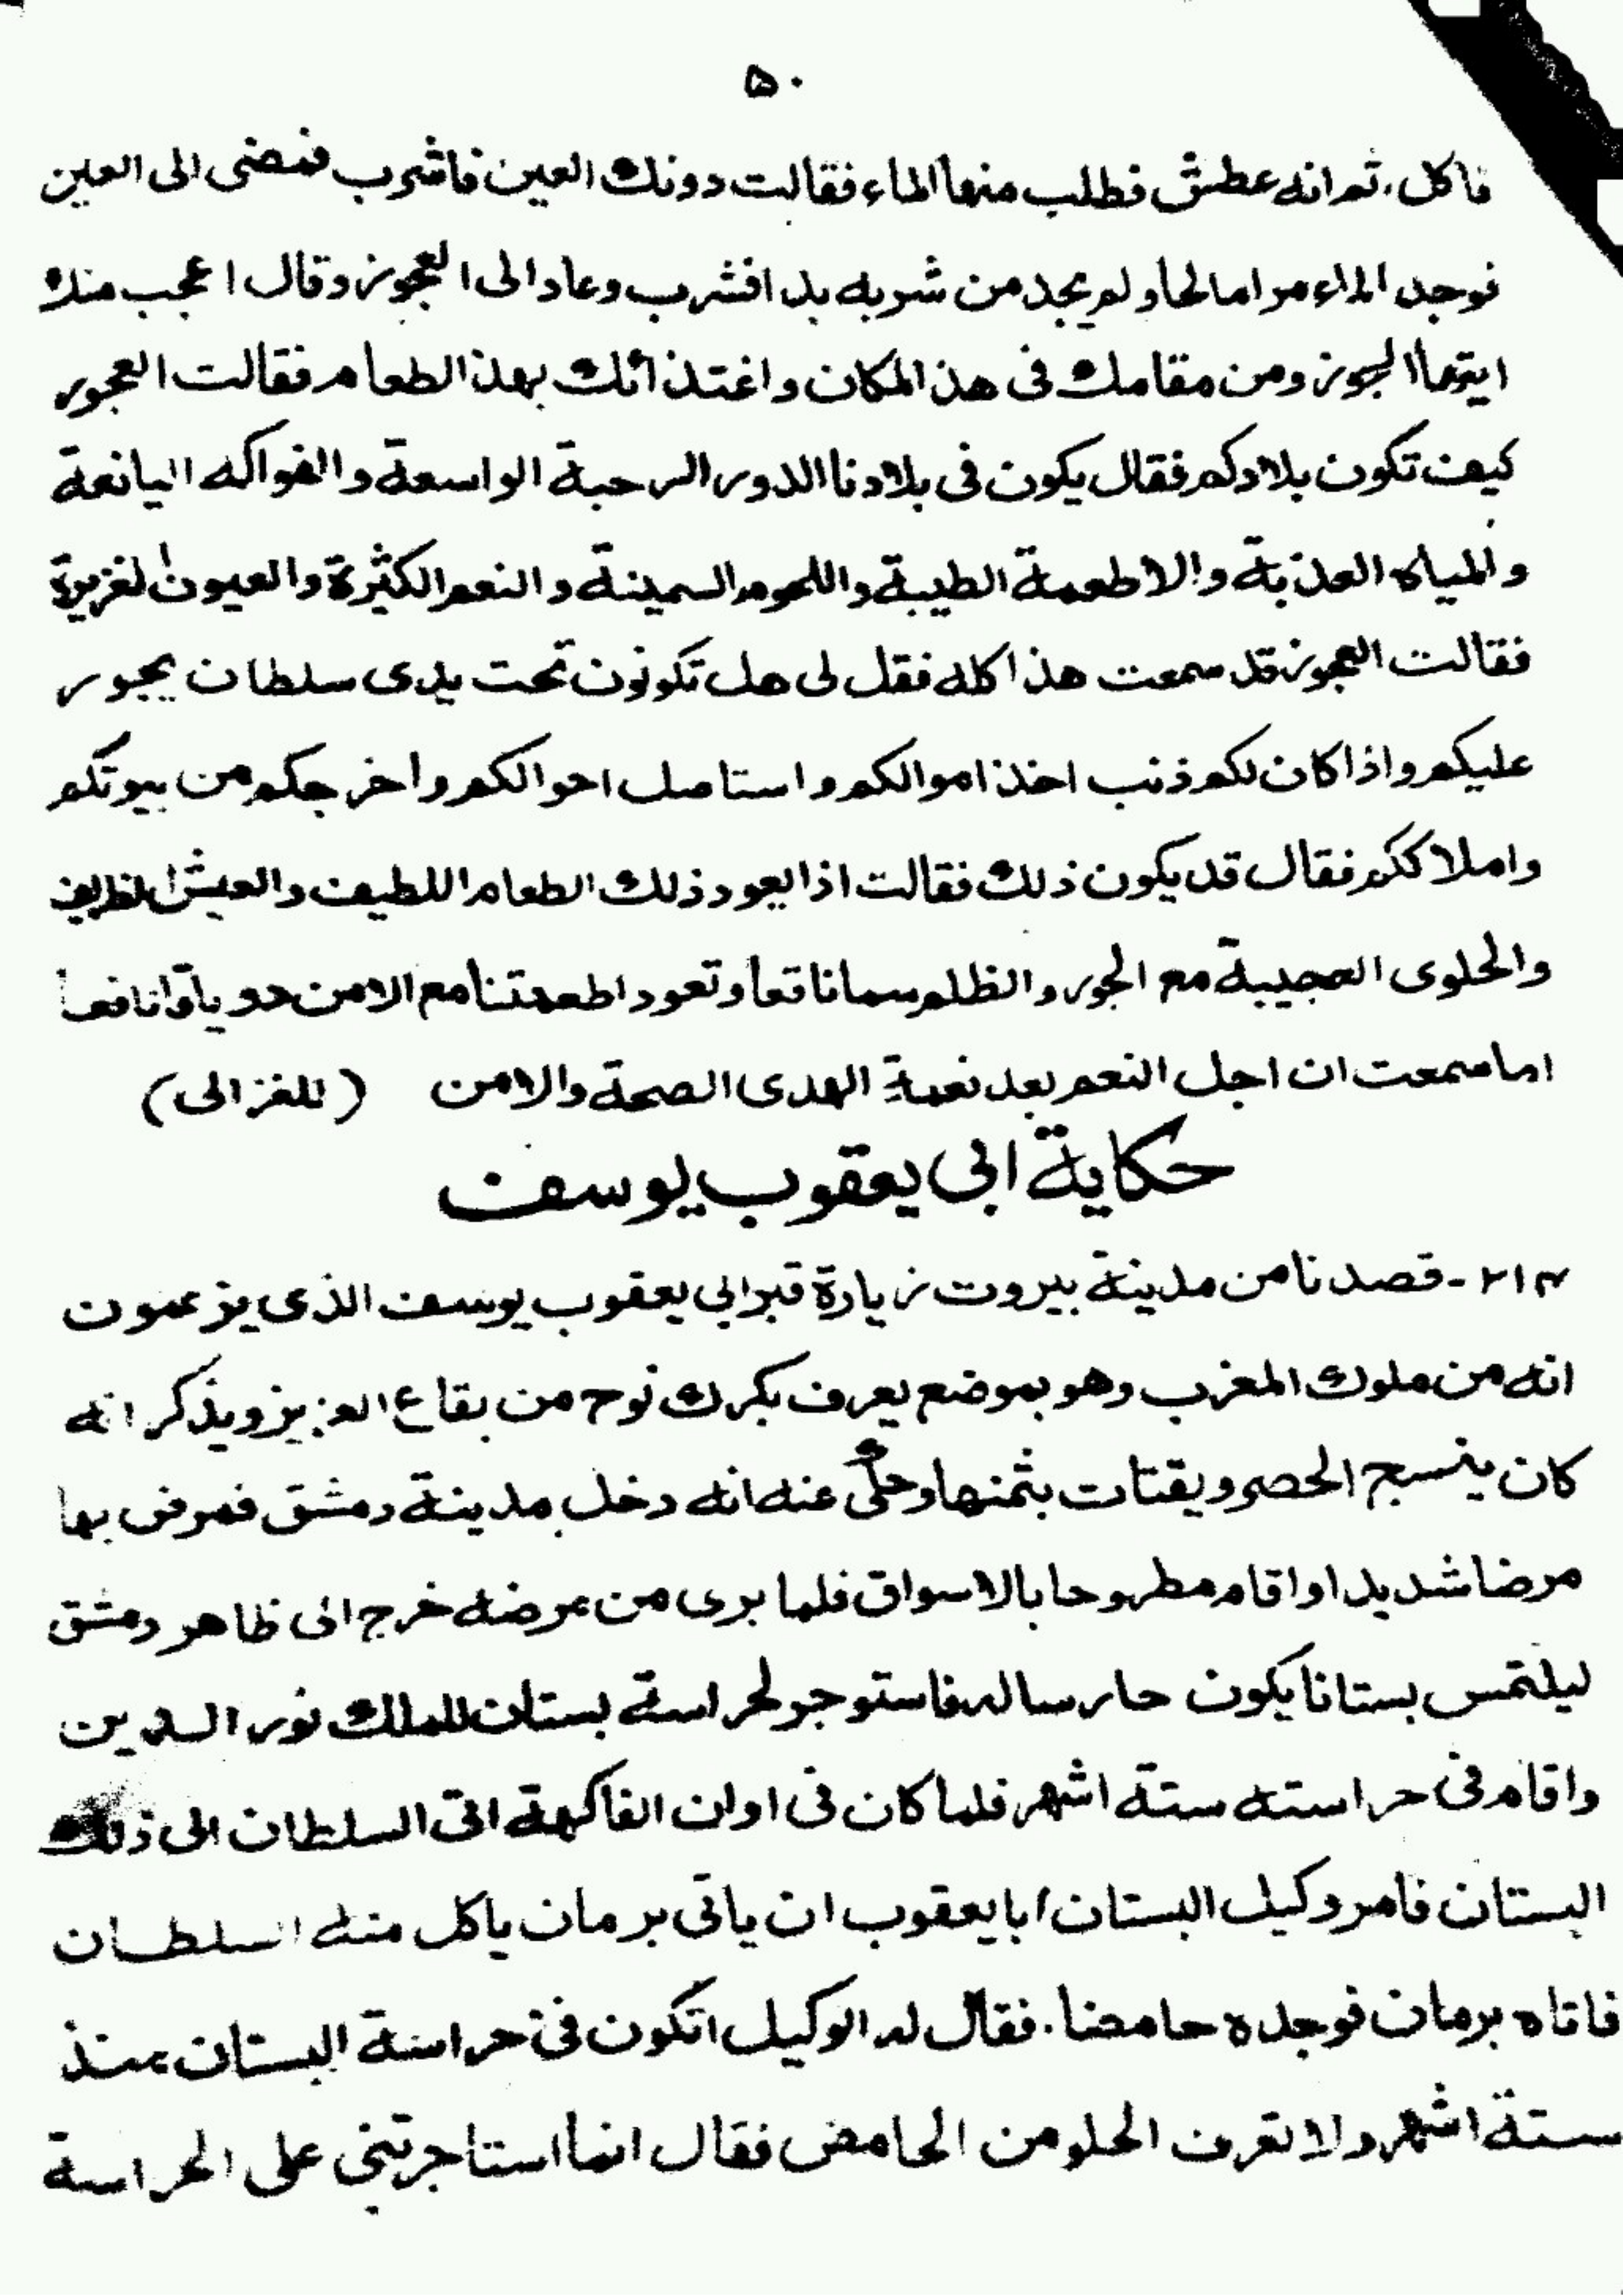 ۵۰
فاكل. ثم انه عطش فطلب منها الماء فقالت دونك العين فاشرب فمضى الى العين
فوجد الماء مرا مالحا ولم يجد من شربه بدا فشرب وعاد الى العجوز وقال اعجب منك
ايتها العجوز ومن مقامك فى هذا المكان واغتذائك بهذا الطعام فقالت العجوز
كيف تكون بلادكم فقال يكون فى بلادنا الدور الرحبة الواسعة والفواكه اليانعة
والمياه العذبة والاطعمة الطيبة واللحوم السمينة والنعم الكثيرة والعيون الغزيرة
فقالت العجوز قد سمعت هذا كله فقل لى هل تكونون تحت يدى سلطان يجور
عليكم واذا كان لكم ذنب اخذ اموالكم واستاصل احوالكم واخرجكم من بيوتكم
واملاككم فقال قد يكون ذلك فقالت اذا يعود ذلك الطعام اللطيف والعيش الظريف
والحلوى العجيبة مع الجور والظلم سما ناقعا وتعود اطعمتنا مع الامن درياقا نافعا
اما سمعت ان اجل النعم بعد نعمة الهدى الصحة والامن (للغزالى)
حكاية ابى يعقوب يوسف
۲۱۴ - قصدنا من مدينة بيروت زيارة قبر ابي يعقوب يوسف الذى يزعمون
انه من ملوك المغرب وهو بموضع يعرف بكرك نوح من بقاع العزيز ويذكر انه
كان ينسج الحصر ويقتات بثمنها وحكى عنه انه دخل مدينة دمشق فمرض بها
مرضا شديدا واقام مطروحا بالاسواق فلما برى من مرضه خرج الى ظاهر دمشق
ليلتمس بستانا يكون حارسا له فاستوجر لحراسة بستان للملك نور الدين
واقام فى حراسته ستة اشهر فلما كان فى اوان الفاكهة اتى السلطان الى ذلك
البستان فامر وكيل البستان ابا يعقوب ان ياتى برمان ياكل منه السلطان
فاتاه برمان فوجده حامضا. فقال له الوكيل اتكون فى حراسة البستان منذ
ستة اشهر ولا تعرف الحلو من الحامض فقال انما استاجرتنى على الحراسة